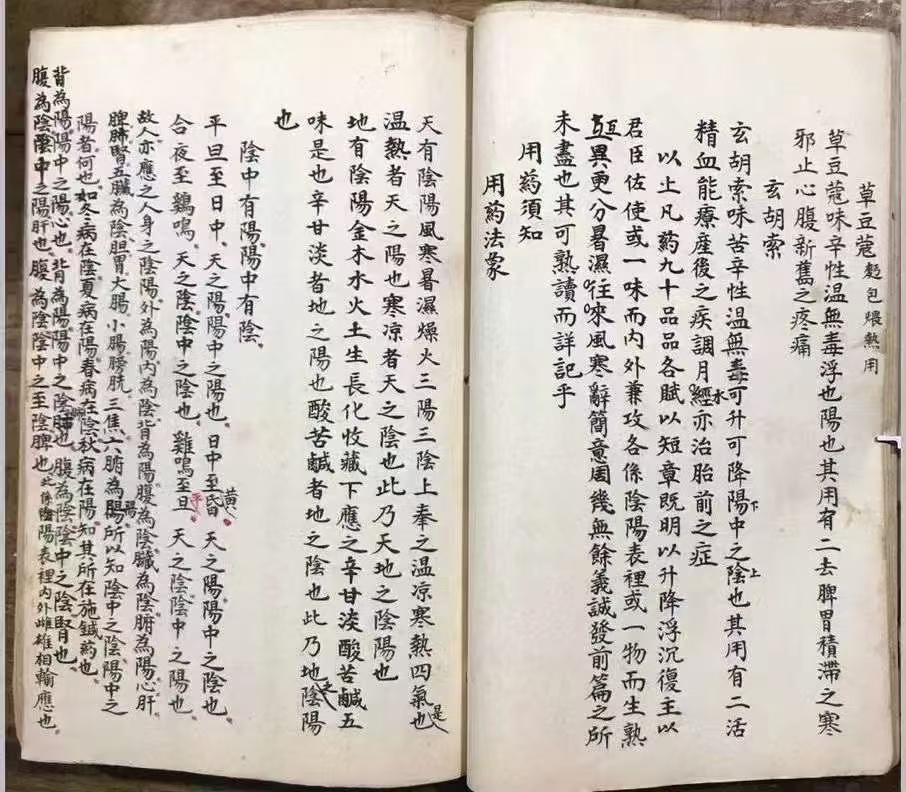 草豆蔻 麪包煨熱用
草豆蔻味辛性温無毒浮也陽也其用有二去脾胃積滯之寒
邪止心腹新舊之疼痛
玄胡索
玄胡索味苦辛性温無毒可升可降陽中下之陰上也其用有二活
精血能療産後之疾調月經水亦治胎前之症
以上凡药九十品品各賦以短章既明以升降浮沉復主以
君臣佐使或一味而内外兼攻各係陰陽表裡或一物而生熟
互異更分暑濕往來風寒辭簡意周幾無餘義誠發前篇之所
未盡也其可熟讀而詳記乎
用药須知
用药法象
天有陰陽風寒暑濕燥火三陽三陰上奉之温凉寒熱四氣是也
温熱者天之陽也寒凉者天之陰也此乃天地之陰陽也
地有陰陽金木水火土生長化收藏下應之辛甘淡酸苦鹹五
味是也辛甘淡者地之陽也酸苦鹹者地之陰也此乃地之陰陽
也
陰中有陽、陽中有陰、
平旦至日中、天之陽、陽中之陽也。日中至黄昏、天之陽陽中之陰也。
合夜至鷄鳴。天之陰、陰中之陰也。雞鳴至平旦。天之陰陰中之陽也。
故人亦應之人身之陰陽外為陽内為陰背為陽腹為陰臟為陰腑為陽心肝
脾肺腎五臟為陰胆胃大腸、小腸膀胱、三焦六腑為陽所以知陰中之陰陽中之
陽者何也如冬病在陰夏病在陽春病在陰秋病在陽知其所在施鍼药也。
背為陽陽中之陽心也。背為陽陽中之陰肺也。腹為陰陰中之陰腎也。
腹為陰陰中之陽肝也。腹為陰陰中之至陰脾也。此係陰陽表裡内外雌雄相輸應也。